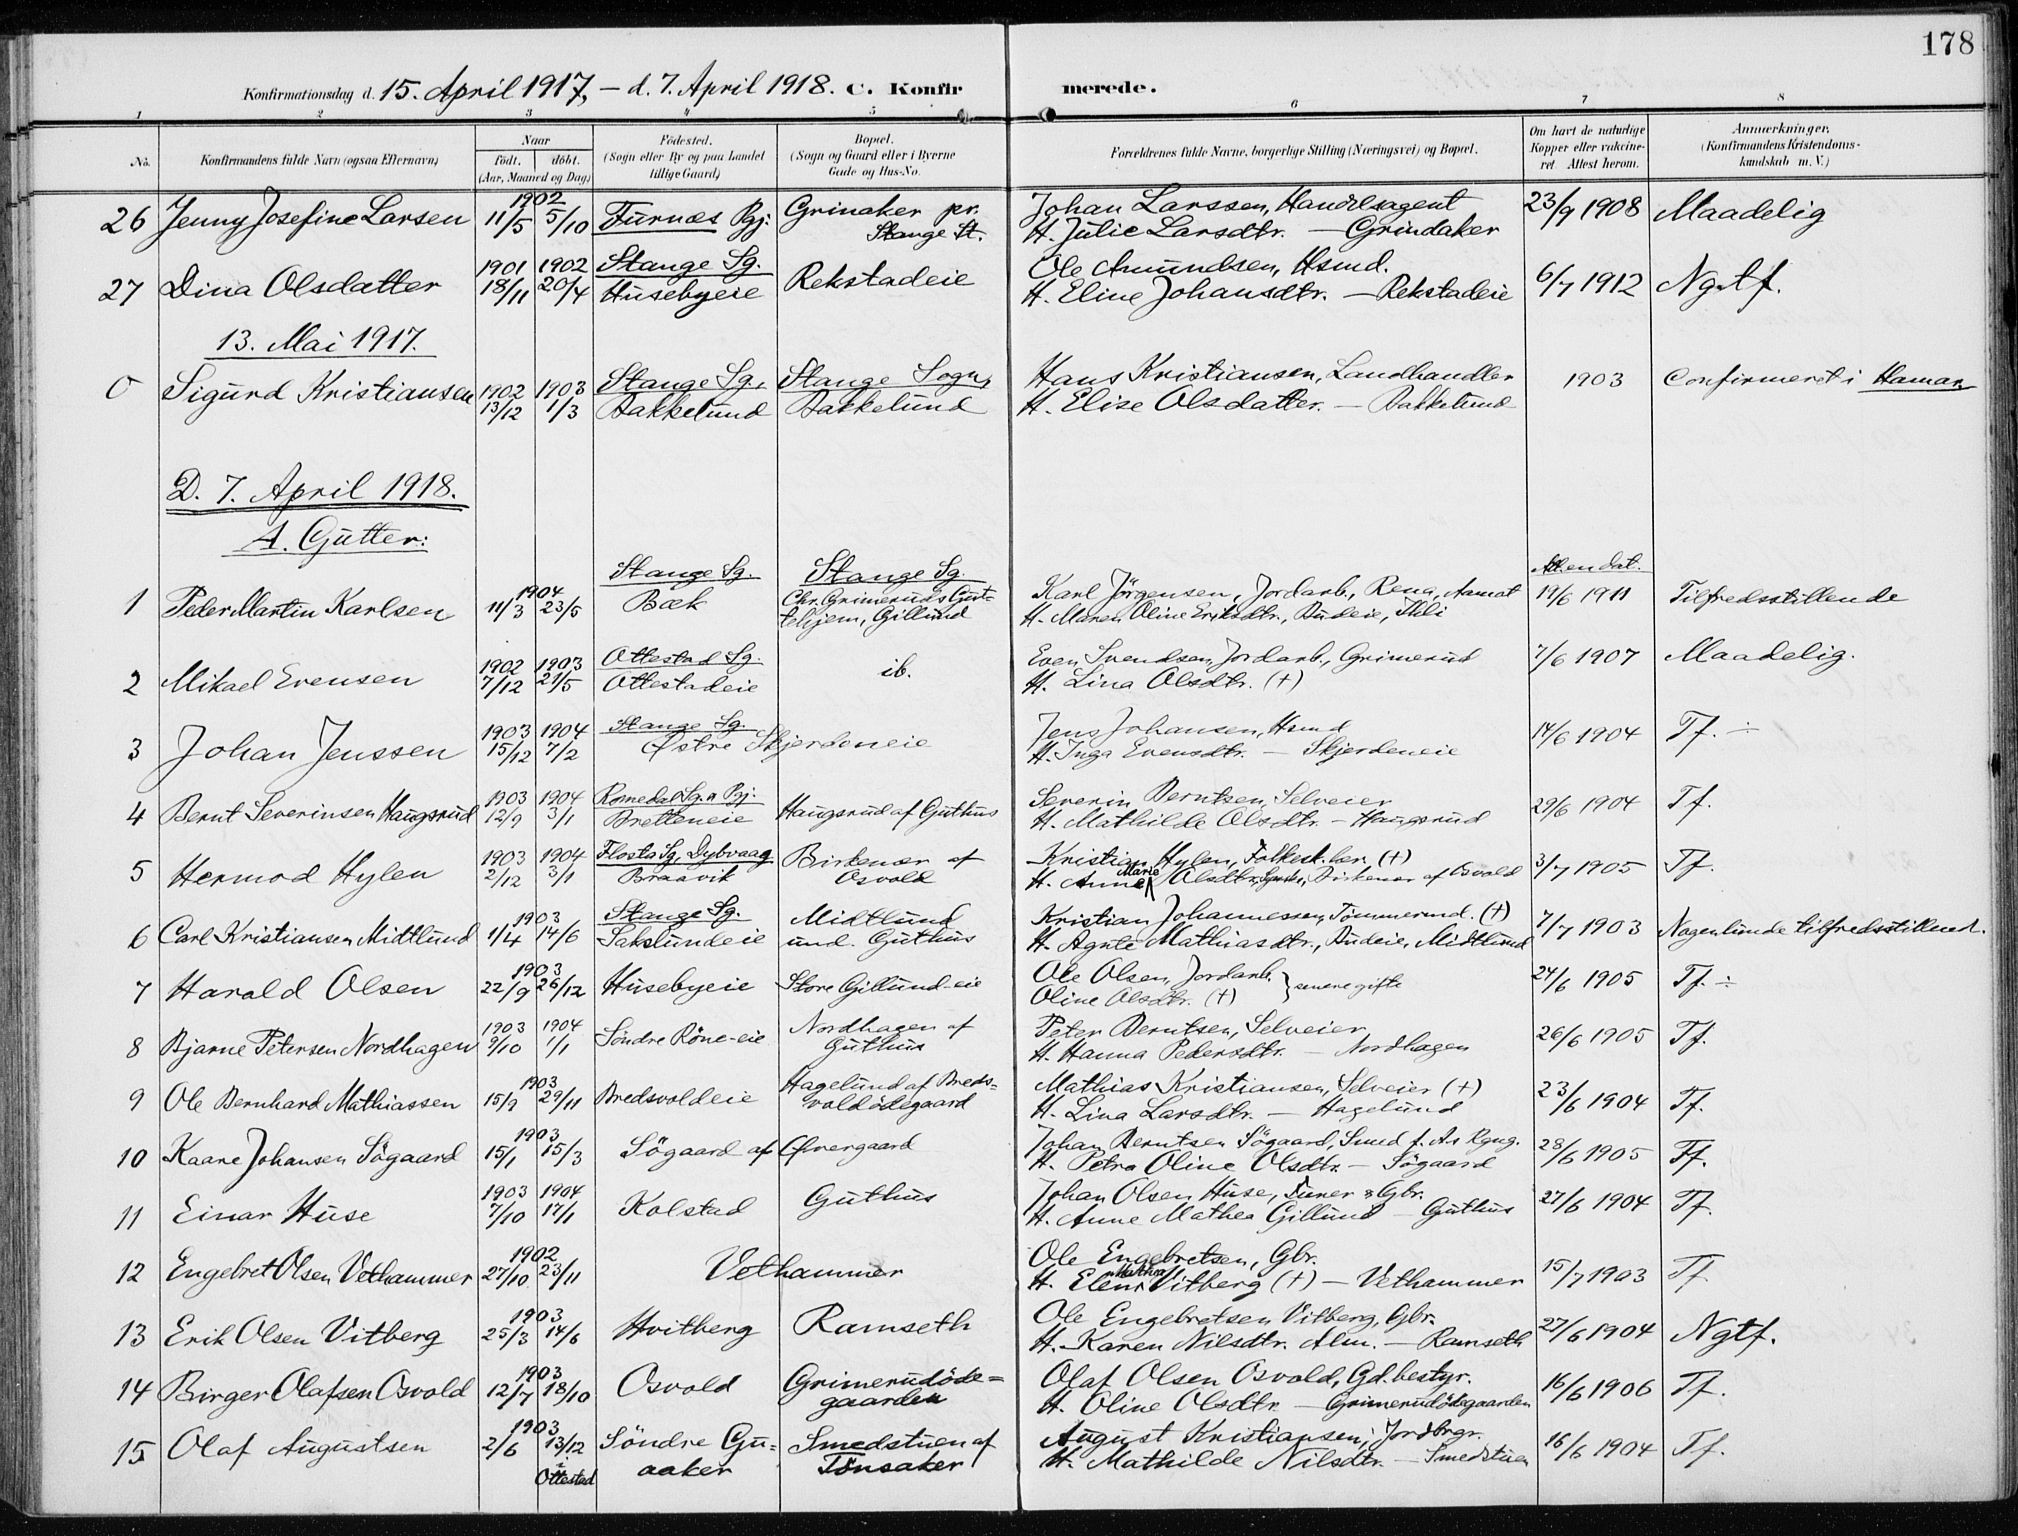 178
Konfirmationsdag d. 15. April 1917, – d. 7. April 1918. C. Konfir merede.
1 2 3 4 5 6 7 8
No. Konfirmandens fulde Navn (ogsaa Efternavn) Naar født. døbt. (Aar, Maaned og Dag) Fødested. (Sogn eller By og paa Landet tillige Gaard) Bopæl. (Sogn og Gaard eller i Byerne Gade og Hus-No. Forældrenes fulde Navne, borgerlige Stilling (Næringsvei) og Bopæl. Om havt de naturlige Kopper eller vakcineret. Attest herom. Anmærkninger. (Konfirmandens Kristendomskundskab m. V.)
26 Jenny Josefine Larsen 1902 11/5 5/10 Furnæs Pgj. Grinaker pr. Stange St. Johan Larssen, Handelsagent H. Julie Larsdtr. – Grindaker 23/9 1908 Maadelig
27 Dina Olsdatter 1901 18/11 1902 20/4 Stange Sg. Husebyeie Rekstadeie Ole Amundsen, Hsmd. H. Eline Johansdtr. – Rekstadeie 6/7 1912 Ngtf.
13. Mai 1917.
0 Sigurd Kristiansen 1902 13/12 1903 1/3 Stange Sg., Bakkelund Stange Sogn, Bakkelund Hans Kristiansen, Landhandler H. Elise Olsdatter. – Bakkelund 1903 Confirmeret i Hamar
D. 7. April 1918.
A. Gutter:
1 Peder Martin Karlsen 1904 11/3 23/5 Stange Sg. Bæk Stange Sg. Chr. Grimeruds Guttehjem, Gillund Karl Jörgensen, Jordarb., Rena, Aamot H. Maren Oline Eriksdtr., Budeie, Att. en dat. 19/6 1911 Tilfredsstillende
2 Mikael Evensen 1902 7/12 1903 21/5 Ottestad Sg. Ottestadeie ib. Even Svendsen, Jordarb., Grimerud H. Lina Olsdtr. (+) 7/6 1907 Maadelig.
3 Johan Jenssen 1903 15/12 1904 7/2 Stange Sg. Østre Skjerdeneie Jens Johansen, Hsmd H. Inga Evensdtr. – Skjerdeneie 14/6 1904 Tf. ÷
4 Bernt Severinsen Haugsrud 1903 12/9 1904 3/1 Romedal Sg. o. Pgj. Bretteneie Haugsrud af Guthus Severin Berntsen, Selveier H. Mathilde Olsdtr. – Haugsrud 29/6 1904 Tf.
5 Hermod Hylen 1903 2/12 1904 3/1 Flosta Sg., Dybvaag Braavik Birkenær af Osvold Kristian Hylen, Folkesk.lær. (+) H. Anne Marie Olsdtr., Birkenær af Osvold 3/7 1905 Tf.
6 Carl Kristiansen Midtlund 1903 1/4 14/6 Stange Sg. Sakslundeie Midtlund und. Guthus Kristian Johannessen, Tömmermd. (+) H. Agnte Mathiasdtr., Budeie, Midtlund 7/7 1903 Nogenlunde tilfredsstillend.
7 Harald Olsen 1903 22/9 26/12 Husebyeie Store Gillund-eie Ole Olsen, Jordarb. Oline Olsdtr. (+) } senere gifte 24/6 1905 Tf. ÷
8 Bjarne Petersen Nordhagen 1903 9/10 1904 1/1 Söndre Röne-eie Nordhagen af Guthus Peter Berntsen, Selveier H. Hanna Pedersdtr. – Nordhagen 26/6 1905 Tf.
9 Ole Bernhard Mathiassen 1903 15/9 29/11 Bredsvoldeie Hagelund af Bredsvoldödegaard Mathias Kristiansen, Selveier (+) H. Lina Larsdtr. – Hagelund 23/6 1904 Tf.
10 Kaare Johansen Sögaard 1903 15/1 15/3 Sögaard af Ofvergaard Johan Berntsen Sögaard, Smed H. Petra Oline Olsdtr. – Sögaard 28/6 1905 Tf.
11 Einar Huse 1903 7/10 1904 17/1 Kolstad Guthus Johan Olsen Huse, & Gbr. H. Anne Mathea Gillund – Guthus 27/6 1904 Tf.
12 Engebret Olsen Vethammer 1902 27/10 23/11 Vethammer Ole Engebretsen, Gbr. H. Eleni Mathea Vitberg (+) – Vethammer 15/7 1903 Tf.
13 Erik Olsen Vitberg 1903 25/3 14/6 Hvitberg Ramseth Ole Engebretsen Vitberg, Gbr. H. Karen Nilsdtr. Alm. – Ramseth 27/6 1904 Ngtf.
14 Birger Olafsen Osvold 1903 12/7 18/10 Osvold Grimerudödegaarden Olaf Olsen Osvold, Gd.bestyr. H. Oline Olsdtr. – Grimerudödegaarden 16/6 1906 Tf.
15 Olaf Augustsen 1903 2/6 13/12 i Ottestad Söndre Guaaker Smedstuen af Tönsaker August Kristiansen, Jordbrgr. H. Mathilde Nilsdtr. – Smedstuen 16/6 1904 Tf.